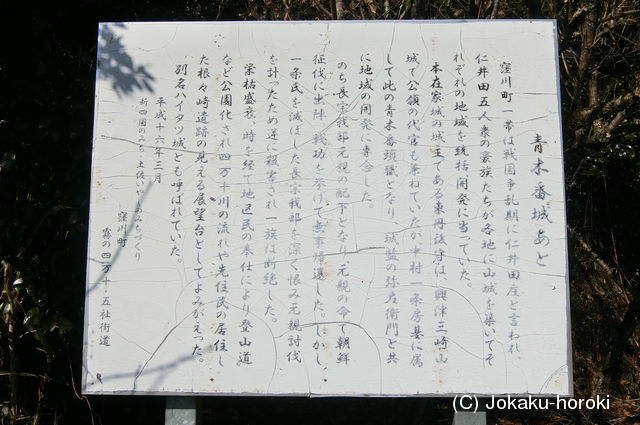 青木番城あと
窪川町一帯は戦国争乱期に仁井田庄と言われ、
仁井田五人衆の豪族たちが各地に山城を築いてそ
れぞれの地域を統括、開発に当っていた。
本在家城の城主である東丹後守は、興津三崎山
城で公領の代官も兼ねていたが中村一条房基に属
して此の青木番頭職となり、城監の弥左衛門と共
に地域の開発に専念した。
のち長宗我部元親の配下となり元親の命で朝鮮
征伐に出陣、戦功を挙げて無事帰還した。しかし
一条氏を滅ぼした長宗我部を深く恨み元親討伐
を計ったため遂に殺害され一族は断絶した。
栄枯盛衰、時を経て地区民の奉仕により登山道
など公園化され四万十川の流れや先住民の居住し
た根々崎遺跡の見える展望台としてよみがえった。
別名ハイタツ城とも呼ばれていた。
平成十六年三月
新四国のみち 土佐いやしのみちづくり
窪川町
霧の四万十・五社街道
(C) Jokaku-horoki